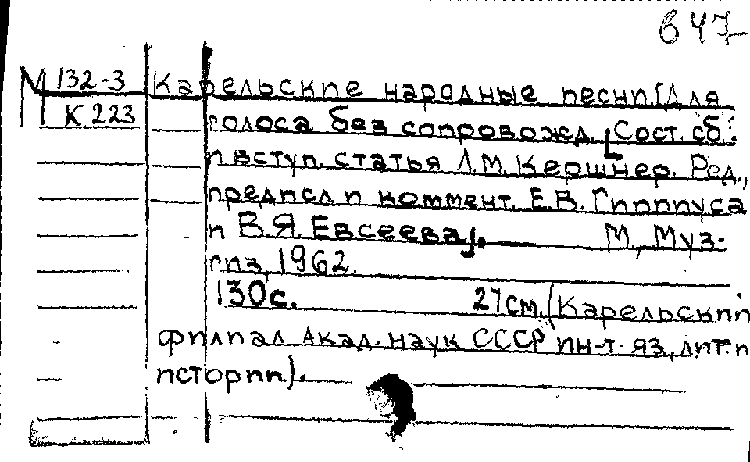 647
М 132-3 Карельские народные песни [Для
К 223 голоса без сопровожд. Сост. сб.
и вступ. статья Л.М. Кершнер. Ред.,
предисл и коммент. Е.В. Гиппиуса
и В.Я. Евсеева]. М, Муз-
гиз, 1962.
130с. 27см. (Карельский
филиал Акад. наук СССР ин-т. яз, лит. и
истории).